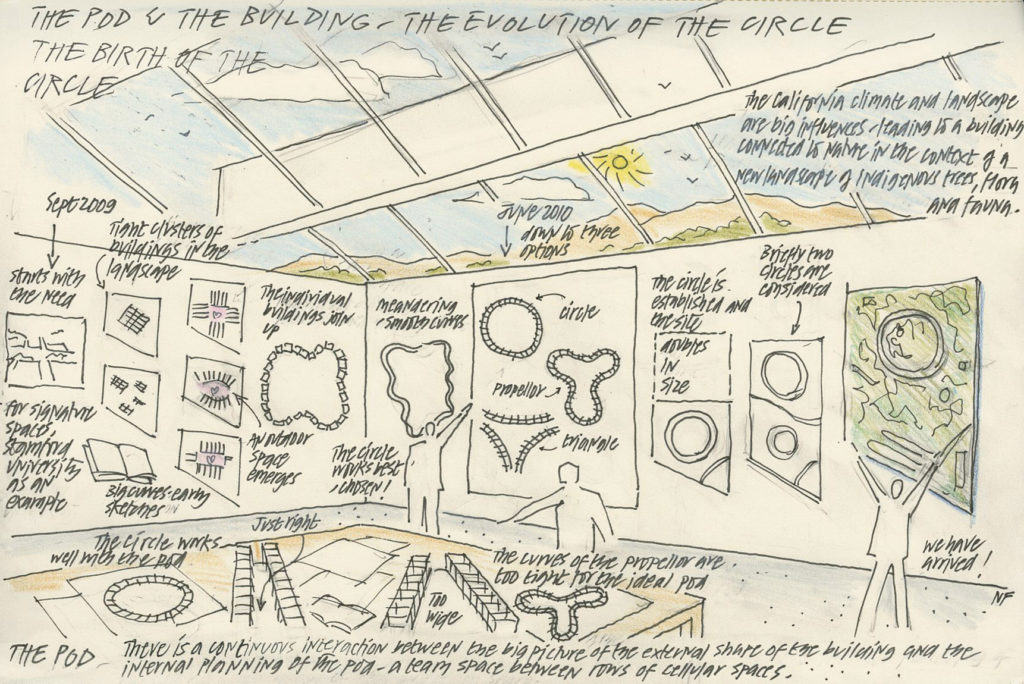 THE POD & THE BUILDING - THE EVOLUTION OF THE CIRCLE
THE BIRTH OF THE
CIRCLE
The California climate and landscape
are big influences - leading to a building
connected to nature in the context of a
new landscape of indigenous trees, flora
and fauna.
Sept 2009
starts with
the need
for signature
space,
Stamford
University
as an
example
Tight clusters of
buildings in the
landscape
Big curves - early
sketches
An outdoor
space
emerges
The individual
buildings join
up
meandering
- smoother curves
The circle
works best
, chosen!
June 2010
down to three
options
circle
propellor
triangle
The circle is
established and
the site
doubles
in
size
Briefly two
circles are
considered
we have
arrived!
NF
Just right
The circle works
well with the pod
Too
wide
The curves of the propellor are
too tight for the ideal pod
THE POD - There is a continuous interaction between the big picture of the external share of the building and the
internal planning of the pod - a team space between rows of cellular spaces.